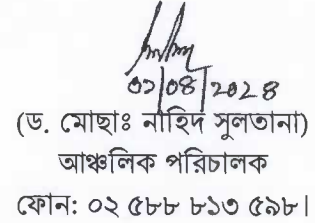 (ড. মোছাঃ নাহিদ সুলতানা)
আঞ্চলিক পরিচালক
ফোন: ০২ ৫৮৮ ৮১৩ ৫৯৮।